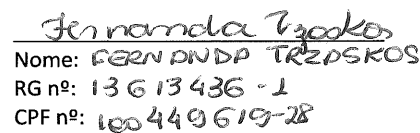 Fernanda Tzoskos
Nome: FERNANDA TRZASKOS
RG nº: 13613436-1
CPF nº: 100449619-28